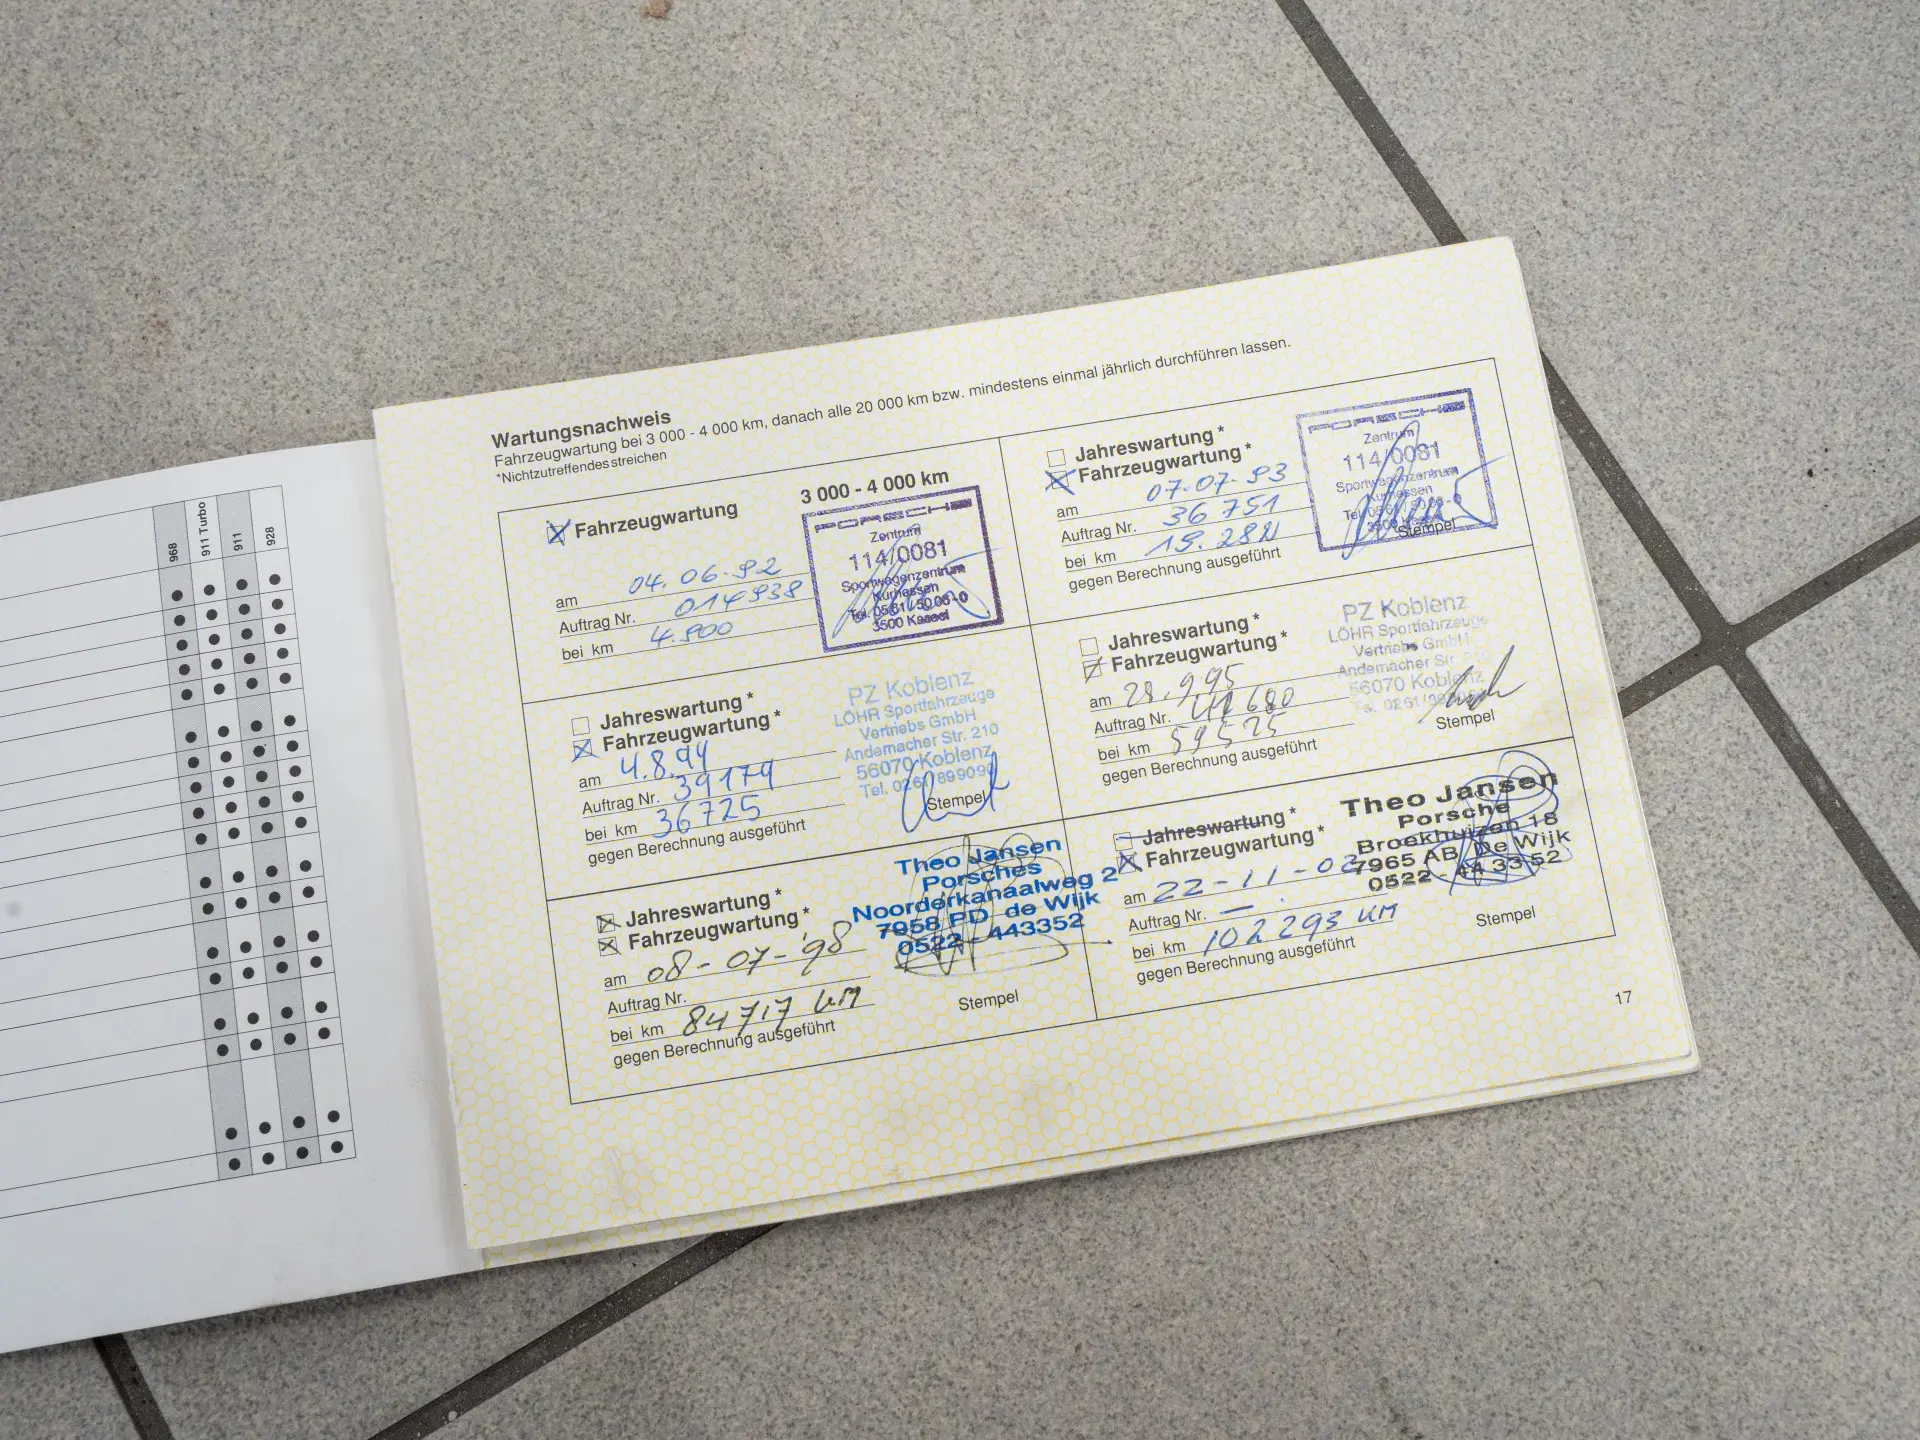 968
911 Turbo
911
928
Wartungsnachweis
Fahrzeugwartung bei 3 000 - 4 000 km, danach alle 20 000 km bzw. mindestens einmal jährlich durchführen lassen.
*Nichtzutreffendes streichen
3 000 - 4 000 km
Fahrzeugwartung
am 04.06.92
Auftrag Nr. 014938
bei km 4.900
PORSCHE
Zentrum
114/0081
Sportwagenzentrum
Kurhessen
Tel. 0561/5006-0
3500 Kassel
Jahreswartung *
Fahrzeugwartung *
am 07.07.93
Auftrag Nr. 36751
bei km
gegen Berechnung ausgeführt
PORSCHE
Zentrum
114/0081
Sportwagenzentrum
Kurhessen
Stempel
Jahreswartung *
Fahrzeugwartung *
am 4.8.94
Auftrag Nr. 39179
bei km 36725
gegen Berechnung ausgeführt
PZ Koblenz
LÖHR Sportfahrzeuge
Vertriebs GmbH
Andernacher Str. 210
56070 Koblenz
Tel. 0261/899090
Stempel
Jahreswartung *
Fahrzeugwartung *
am 28.9.95
Auftrag Nr.
bei km 59525
gegen Berechnung ausgeführt
PZ Koblenz
LÖHR Sportfahrzeuge
Vertriebs GmbH
Andernacher Str. 210
56070 Koblenz
Stempel
Jahreswartung *
Fahrzeugwartung *
am 08-07-'98
Auftrag Nr.
bei km 84717 KM
gegen Berechnung ausgeführt
Theo Jansen
Porsches
Noorderkanaalweg 2
7958 PD de Wijk
0522 - 443352
Stempel
Jahreswartung *
Fahrzeugwartung *
am 22-11-02
Auftrag Nr. —
bei km 102293 KM
gegen Berechnung ausgeführt
Theo Jansen
Porsche
Broekhuizen 18
7965 AB De Wijk
0522 - 44 33 52
Stempel
17